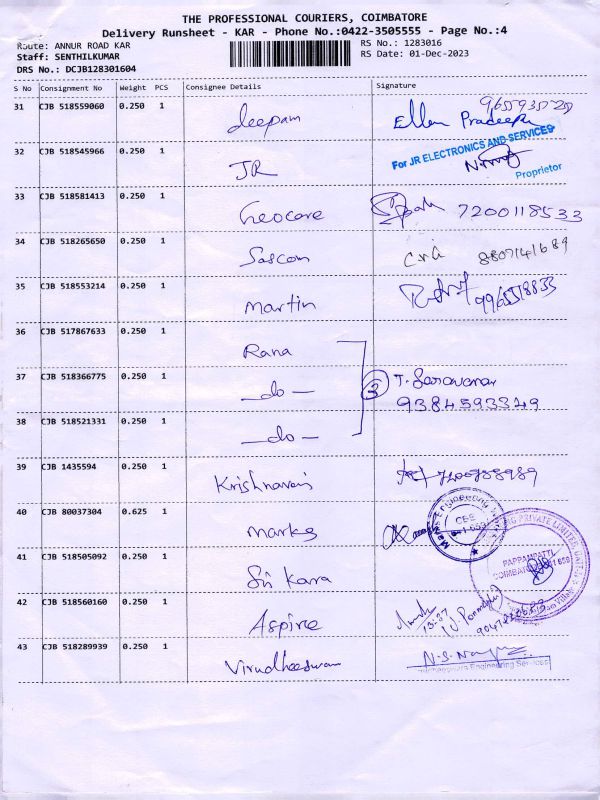 THE PROFESSIONAL COURIERS, COIMBATORE
Delivery Runsheet - KAR - Phone No.:0422-3505555 - Page No.:4
Route: ANNUR ROAD KAR
Staff: SENTHILKUMAR
DRS No.: DCJB128301604
RS No.: 1283016
RS Date: 01-Dec-2023
S No Consignment No Weight PCS Consignee Details Signature
31 CJB 518559060 0.250 1 deepam
32 CJB 518545966 0.250 1 JR For JR ELECTRONICS AND SERVICES
Proprietor
33 CJB 518581413 0.250 1 Geocare 7200118533
34 CJB 518265650 0.250 1 Sascon 8807141689
35 CJB 518553214 0.250 1 Martin
36 CJB 517867633 0.250 1 Rana
37 CJB 518366775 0.250 1 —do— 3 T. Saravanan
9384593349
38 CJB 518521331 0.250 1 —do—
39 CJB 1435594 0.250 1
40 CJB 80037304 0.625 1 Marks
41 CJB 518505092 0.250 1 Sri Kara PAPPAMPATTI
42 CJB 518560160 0.250 1 Aspire
43 CJB 518289939 0.250 1 Virudheeswarar
Engineering Services